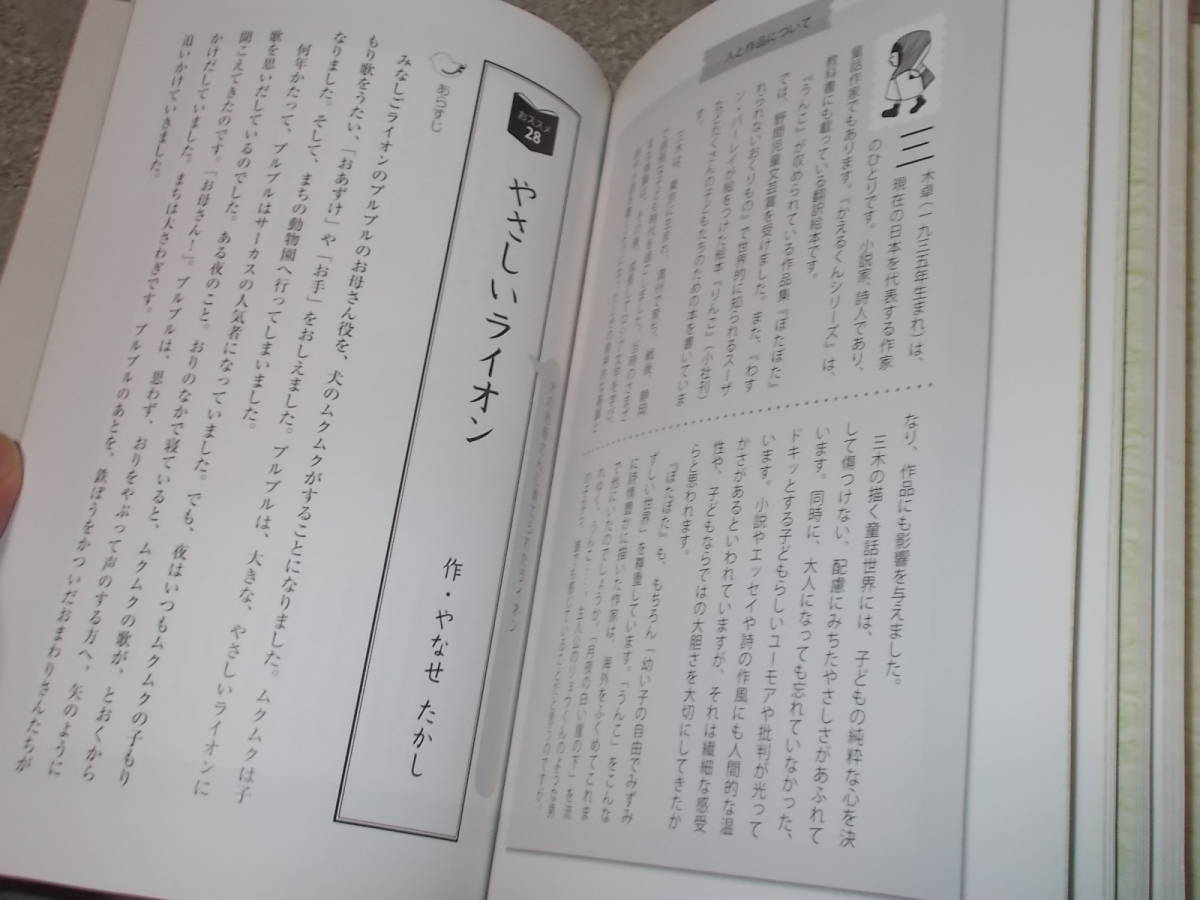 人と作品について
三木卓(一九三五年生まれ)は、
現在の日本を代表する作家
のひとりです。小説家、詩人であり、
童話作家でもあります。『がえるくんシリーズ』は、
教科書にも載っている翻訳絵本です。
『うんこ』が収められている作品集『ぽたぽた』
では、野間児童文芸賞を受けました。また、『わす
れられないおくりもの』で世界的に知られるスーザ
ン・バーレイが絵をつけた絵本『りんご』(小社刊)
などたくさんの子どもたちのための本を書いていま
す。
なり、作品にも影響を与えました。
三木の描く童話世界には、子どもの純粋な心を決
して傷つけない、配慮にみちたやさしさがあふれて
います。同時に、大人になっても忘れていなかった、
ドキッとする子どもらしいユーモアや批判が光って
います。小説やエッセイや詩の作風にも人間的な温
かさがあるといわれていますが、それは繊細な感受
性や、子どもならではの大胆さを大切にしてきたか
らと思われます。
『ぽたぽた』も、もちろん「幼い子の自由でみずみ
ずしい世界」を尊重しています。「うんこ」をこんな
に詩情豊かに描いた作家は、海外をふくめてこれま
で他にいたのでしょうか。「月夜の白い崖の下」を流
おススメ
28
やさしいライオン
作・やなせ たかし
あらすじ
みなしごライオンのブルブルのお母さん役を、犬のムクムクがすることになりました。ムクムクは子
もり歌をうたい、「おあずけ」や「お手」をおしえました。ブルブルは、大きな、やさしいライオンに
なりました。そして、まちの動物園へ行ってしまいました。
何年かたって、ブルブルはサーカスの人気者になっていました。でも、夜はいつもムクムクの子もり
歌を思いだしているのでした。ある夜のこと。おりのなかで寝ていると、ムクムクの歌が、とおくから
聞こえてきたのです。「お母さん!」。ブルブルは、思わず、おりをやぶって声のする方へ、矢のように
かけだしていました。まちは大さわぎです。ブルブルのあとを、鉄ぽうをかついだおまわりさんたちが
追いかけていきました。